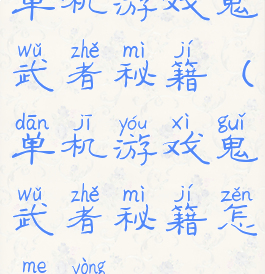 单机游戏鬼
wǔ zhě mì jí
武者秘籍（
dān jī yóu xì guǐ
单机游戏鬼
wǔ zhě mì jí zěn
武者秘籍怎
me yòng